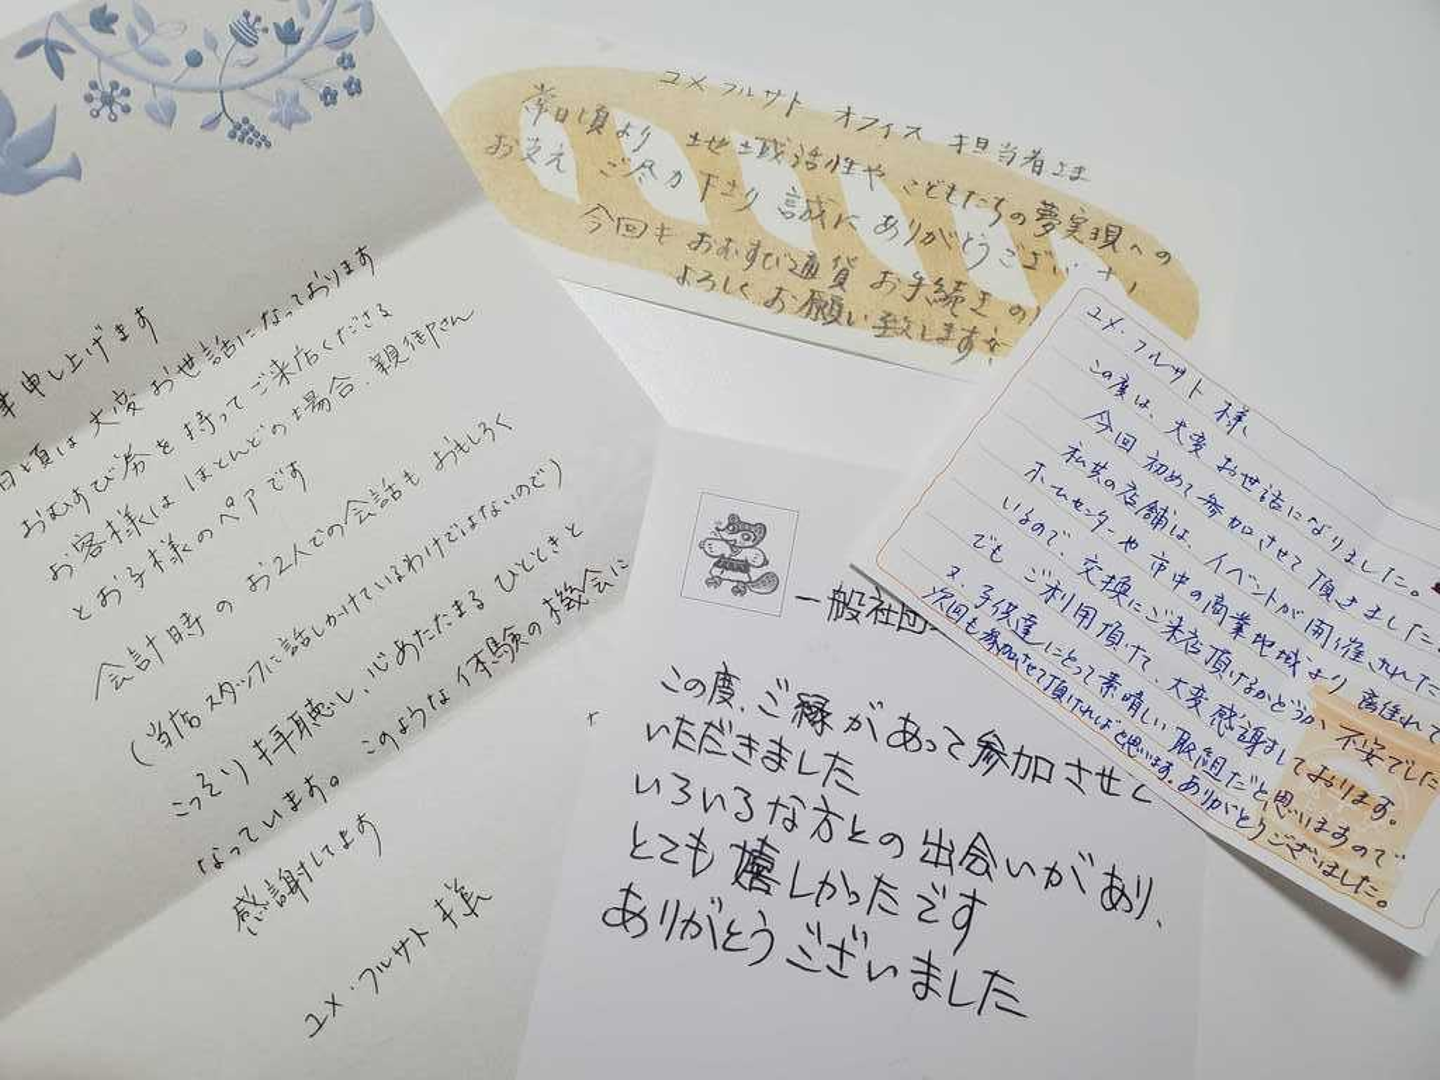 申し上げます
日頃は大変お世話になっております
おむすび券を持ってご来店くださる
お客様はほとんどの場合、親御さん
とお子様のペアです
会計時のお2人での会話もおもしろく
(当店スタッフに話しかけているわけではないので)
こっそり拝聴し、心あたたまるひとときと
なっています。このような体験の機会に
感謝してます
ユメ・フルサト様
ユメ・フルサト オフィス 担当者さま
常日頃より 地域活性や こどもたちの夢実現への
お支え ご尽力下さり 誠に ありがとうございます
今回も おむすび通貨 お手続きの
よろしくお願い致します
ユメ・フルサト 様
この度は、大変 お世話になりました。
今回 初めて参加させて頂きました。
私共の店舗は、イベントが開催された
ホームセンターや 市中の商業地域より 離れて
いるので、交換にご来店頂けるかどうか、不安でした
でも ご利用頂けて、大変感謝しております。
又、子供達にとって素晴しい取組だと思いますので
次回も参加させて頂ければと思います。ありがとうございました。
一般社団
この度、ご縁があって参加させて
いただきました
いろいろな方との出会いがあり、
とても嬉しかったです
ありがとうございました